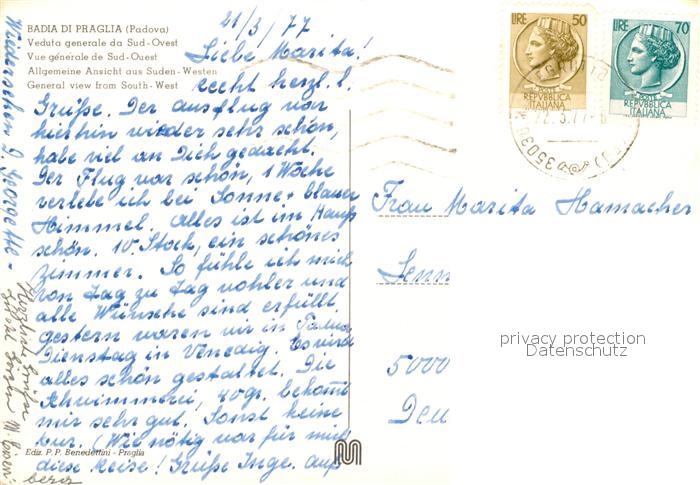 BADIA DI PRAGLIA (Padova)
Veduta generale da Sud-Ovest
Vue générale de Sud-Ouest
Allgemeine Ansicht aus Suden-Westen
General view from South-West
21/3/77
Liebe Marita!
recht herzl. l.
Grüße. Der Ausflug war
hierhin wieder sehr schön,
habe viel an Dich gedacht.
Der Flug war schön, 1 Woche
verlebe ich bei Sonne + blauen
Himmel. Alles ist im Haus
schön. 10. Stock, ein schönes
Zimmer. So fühle ich mich
von Tag zu Tag wohler und
alle Wünsche sind erfüllt.
gestern waren wir in Padua
Dienstag in Venedig. Es wird
alles schön gestaltet. Die
Schwimmerei, 40gr. bekommt
mir sehr gut. Sonst keine
Kur. (Wie nötig war für mich
diese Reise! Grüße Inge. Auf
Wiedersehen
Herzliche Grüße
Ediz. P. P. Benedettini - Praglia
LIRE 50
POSTE
REPVBBLICA
ITALIANA
LIRE 70
POSTE
REPVBBLICA
ITALIANA
35038
Frau Marita Hamacher
Senn
5000
Deu
privacy protection
Datenschutz